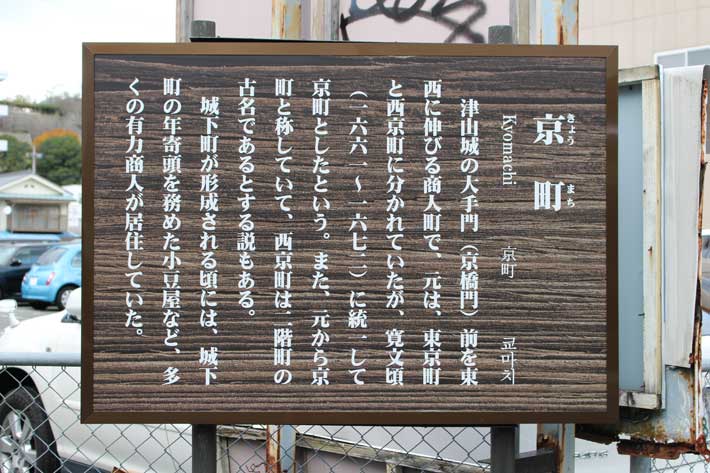 京町
きょう まち
Kyomachi 京町 교마치
津山城の大手門（京橋門）前を東
西に伸びる商人町で、元は、東京町
と西京町に分かれていたが、寛文頃
（一六六一～一六七二）に統一して
京町としたという。また、元から京
町と称していて、西京町は二階町の
古名であるとする説もある。
城下町が形成される頃には、城下
町の年寄頭を務めた小豆屋など、多
くの有力商人が居住していた。